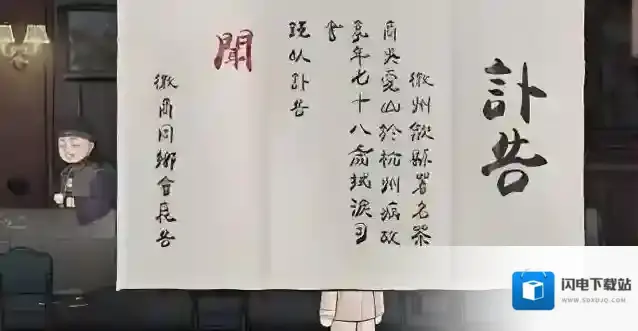 訃告
徽州歙縣著名茶
商吳亮山於杭州病故
享年七十八歲拭淚
告
聞
徽商同鄉會哀告
闪电下载站
WWW.SDXDJQ.COM